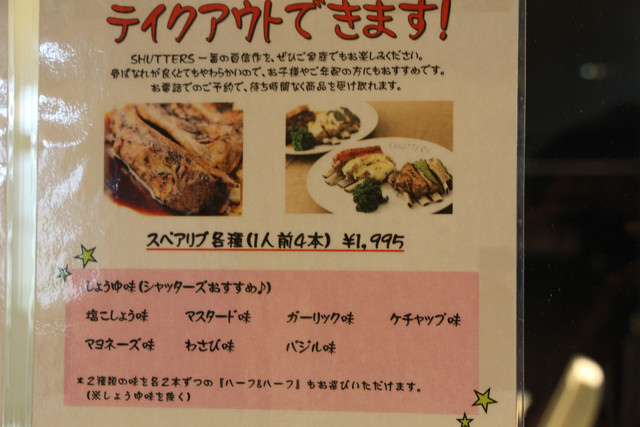 テイクアウトできます!
SHUTTERS一番の自信作を、ぜひご家庭でもお楽しみください。
骨ばなれが良くとてもやわらかいので、お子様やご年配の方にもおすすめです。
お電話でのご予約で、待ち時間なく商品を受け取れます。
SHUTTERS
スペアリブ各種(1人前4本) ¥1,995
しょうゆ味(シャッターズおすすめ♪)
塩こしょう味 マスタード味 ガーリック味 ケチャップ味
マヨネーズ味 わさび味 バジル味
*2種類の味を各2本ずつの『ハーフ&ハーフ』もお選びいただけます。
(※しょうゆ味を除く)